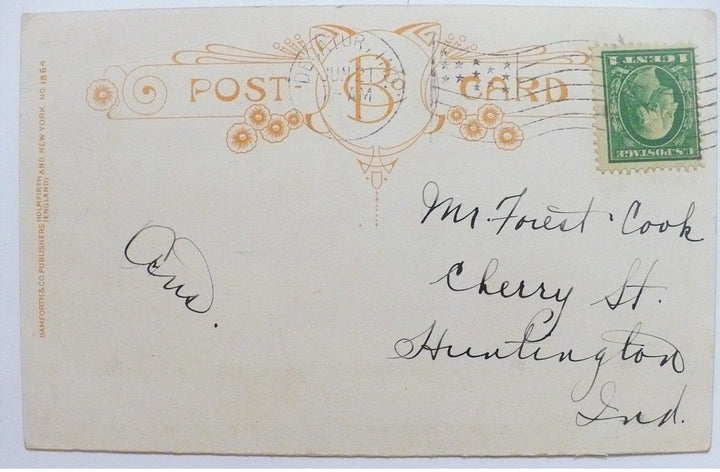 POST CARD
B
DECATUR, IND.
JUN 21
AM
U.S. POSTAGE
1 CENT 1
BAMFORTH & CO. PUBLISHERS (HOLMFIRTH (ENGLAND) AND NEW YORK NO. 1864
Mr. Forest Cook
Cherry St.
Huntington
Ind.